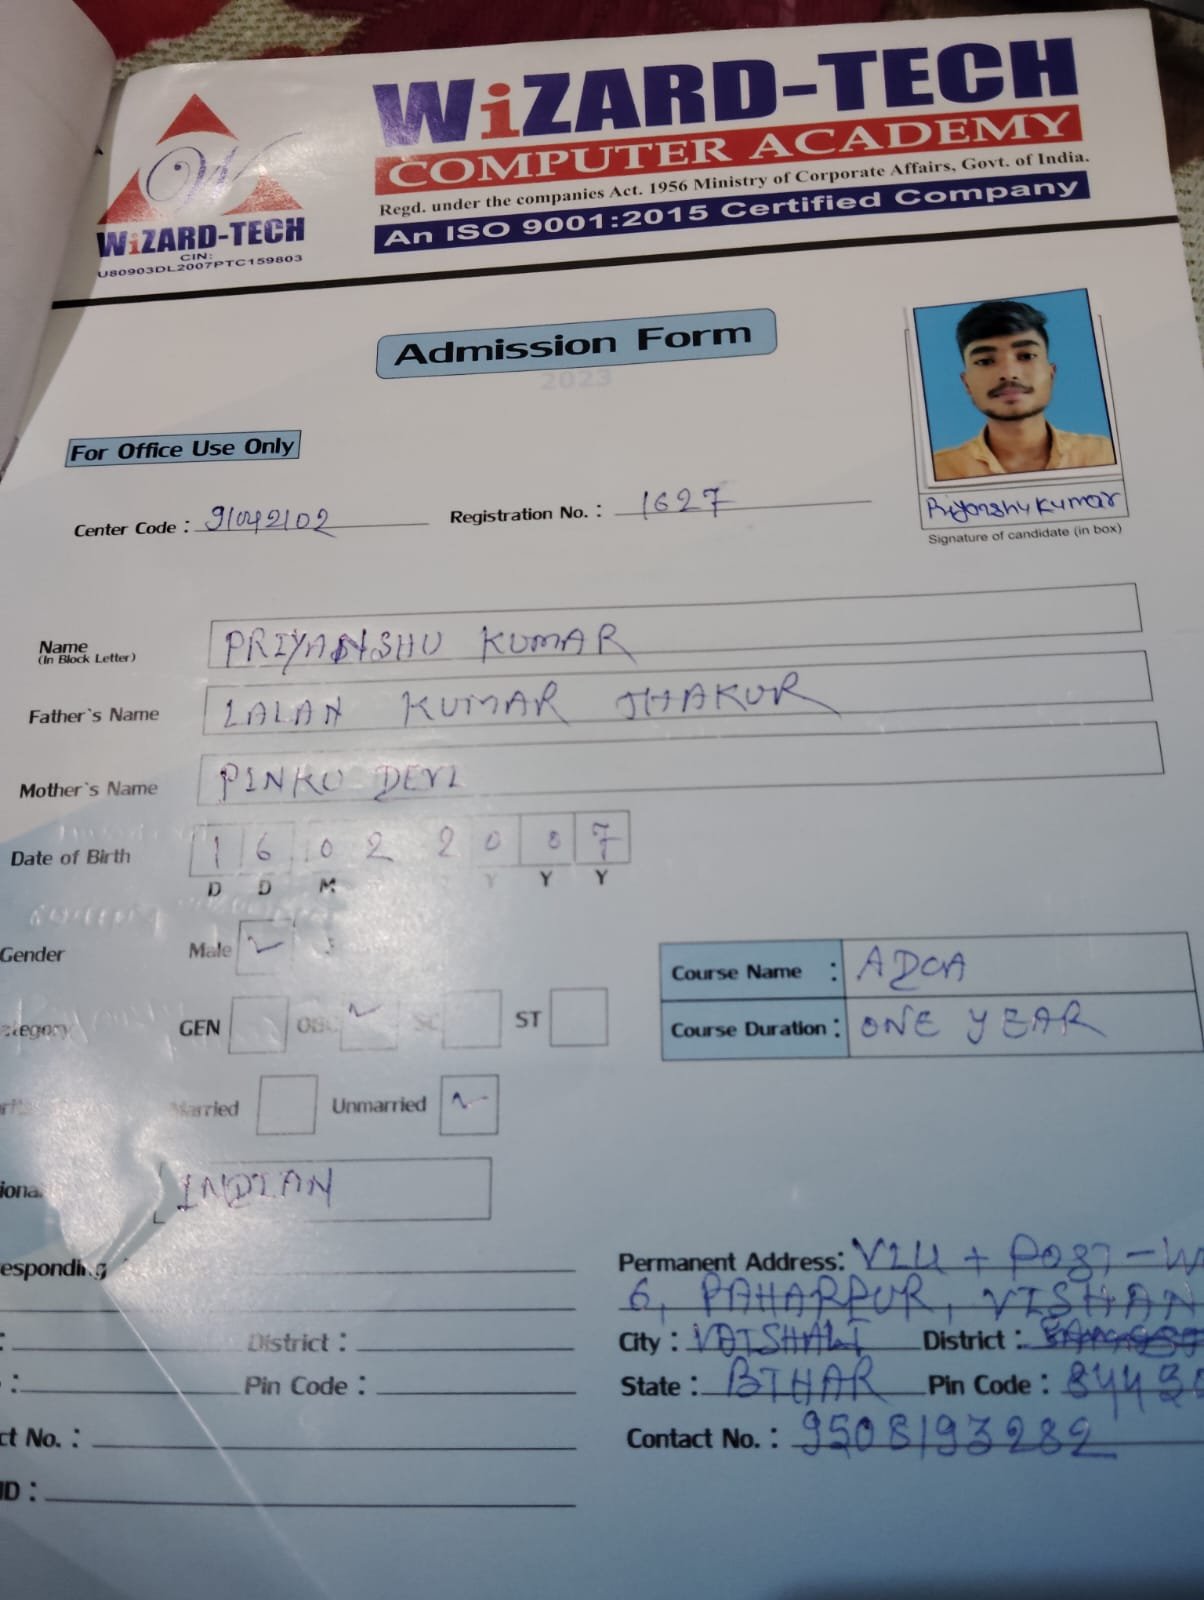 WiZARD-TECH
COMPUTER ACADEMY
Regd. under the companies Act. 1956 Ministry of Corporate Affairs, Govt. of India.
An ISO 9001:2015 Certified Company
W
WiZARD-TECH
CIN:
U80903DL2007PTC159803
Admission Form
2023
For Office Use Only
Center Code : 91042102 Registration No. : 1627
Priyanshu Kumar
Signature of candidate (in box)
Name PRIYANSHU KUMAR
(In Block Letter)
Father`s Name LALAN KUMAR THAKUR
Mother`s Name PINKU DEVI
Date of Birth 16 02 2007
D D M Y Y Y
Gender Male
Course Name : ADCA
Category GEN OBC SC ST
Course Duration : ONE YEAR
Married Unmarried
INDIAN
esponding
Permanent Address: VILL + POST - W
6, PAHARPUR, VISHAN
District :
City : VAISHALI District :
Pin Code :
State : BIHAR Pin Code : 8443
ct No. :
Contact No. : 9508193282
ID :